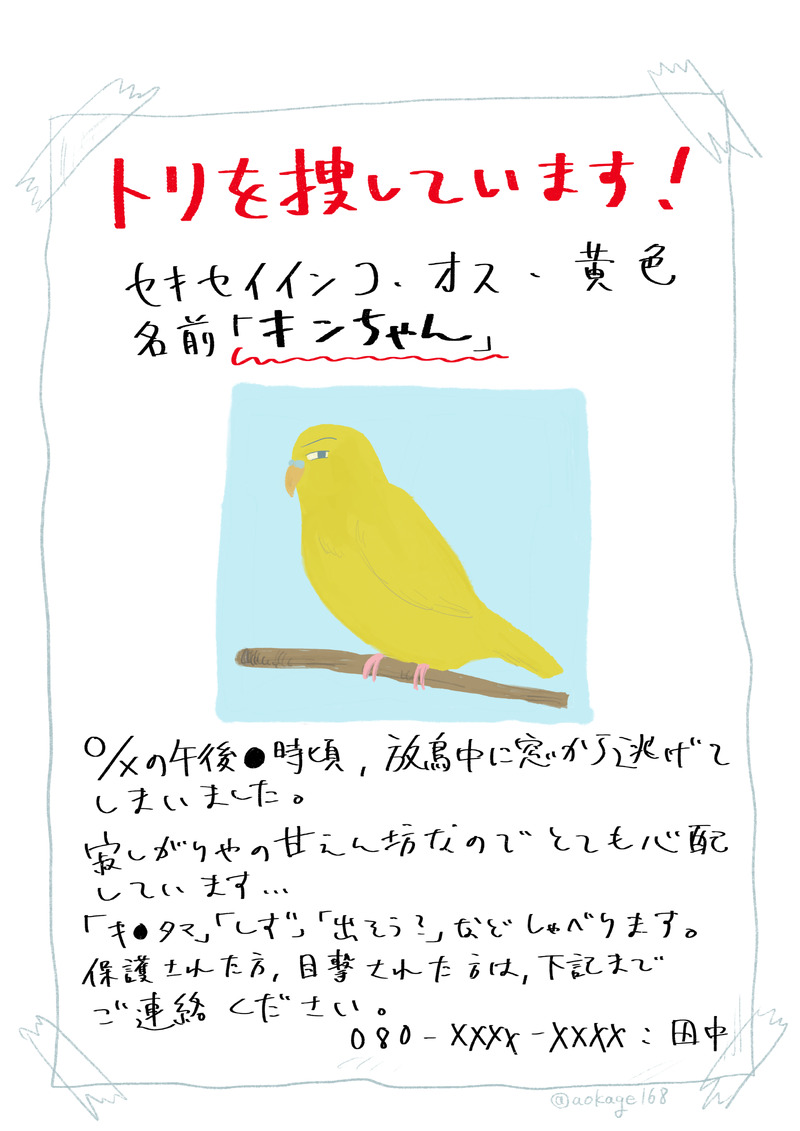 トリを捜しています!
セキセイインコ、オス、黄色
名前「キンちゃん」
○/×の午後●時頃,放鳥中に窓から逃げて
しまいました。
寂しがりやの甘えん坊なのでとても心配
しています…
「キ●タマ」「しずく」「出そう?」などしゃべります。
保護された方,目撃された方は,下記まで
ご連絡ください。
080-XXXX-XXXX:田中
@aokage168